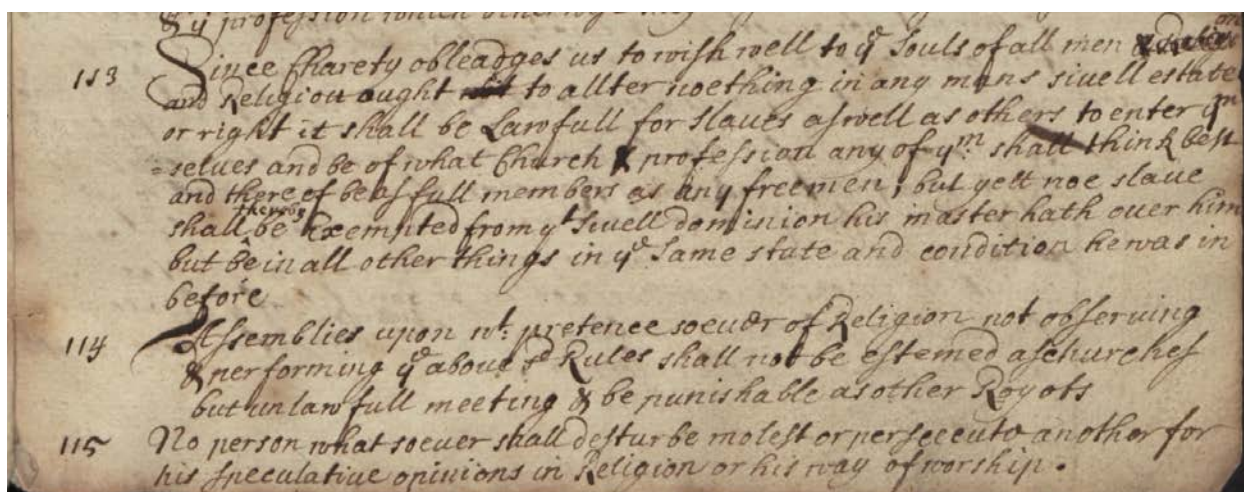 & yͤ profession which
113 Since Charety obleadges us to wish well to yͤ Souls of all men
and Religion ought to allter noething in any mans sivell estate
or right it shall be Lawfull for slaves aswell as others to enter yᵐ
=selves and be of what Church & profession any of yᵐ. shall think best
and thereof be as full members as any freemen, but yett noe slave
shall thereby be Exempted from yᵗ Sivell dominion his master hath over him
but be in all other things in yͤ Same state and condition he was in
before
114 Assemblies upon wᵗ. pretence soever of Religion not observing
& performing yͤ above sᵈ Rules shall not be estemed as churches
but unlawfull meeting & be punishable as other Royots
115 No person whatsoever shall desturbe molest or persecute another for
his speculative opinions in Religion or his way of worship.